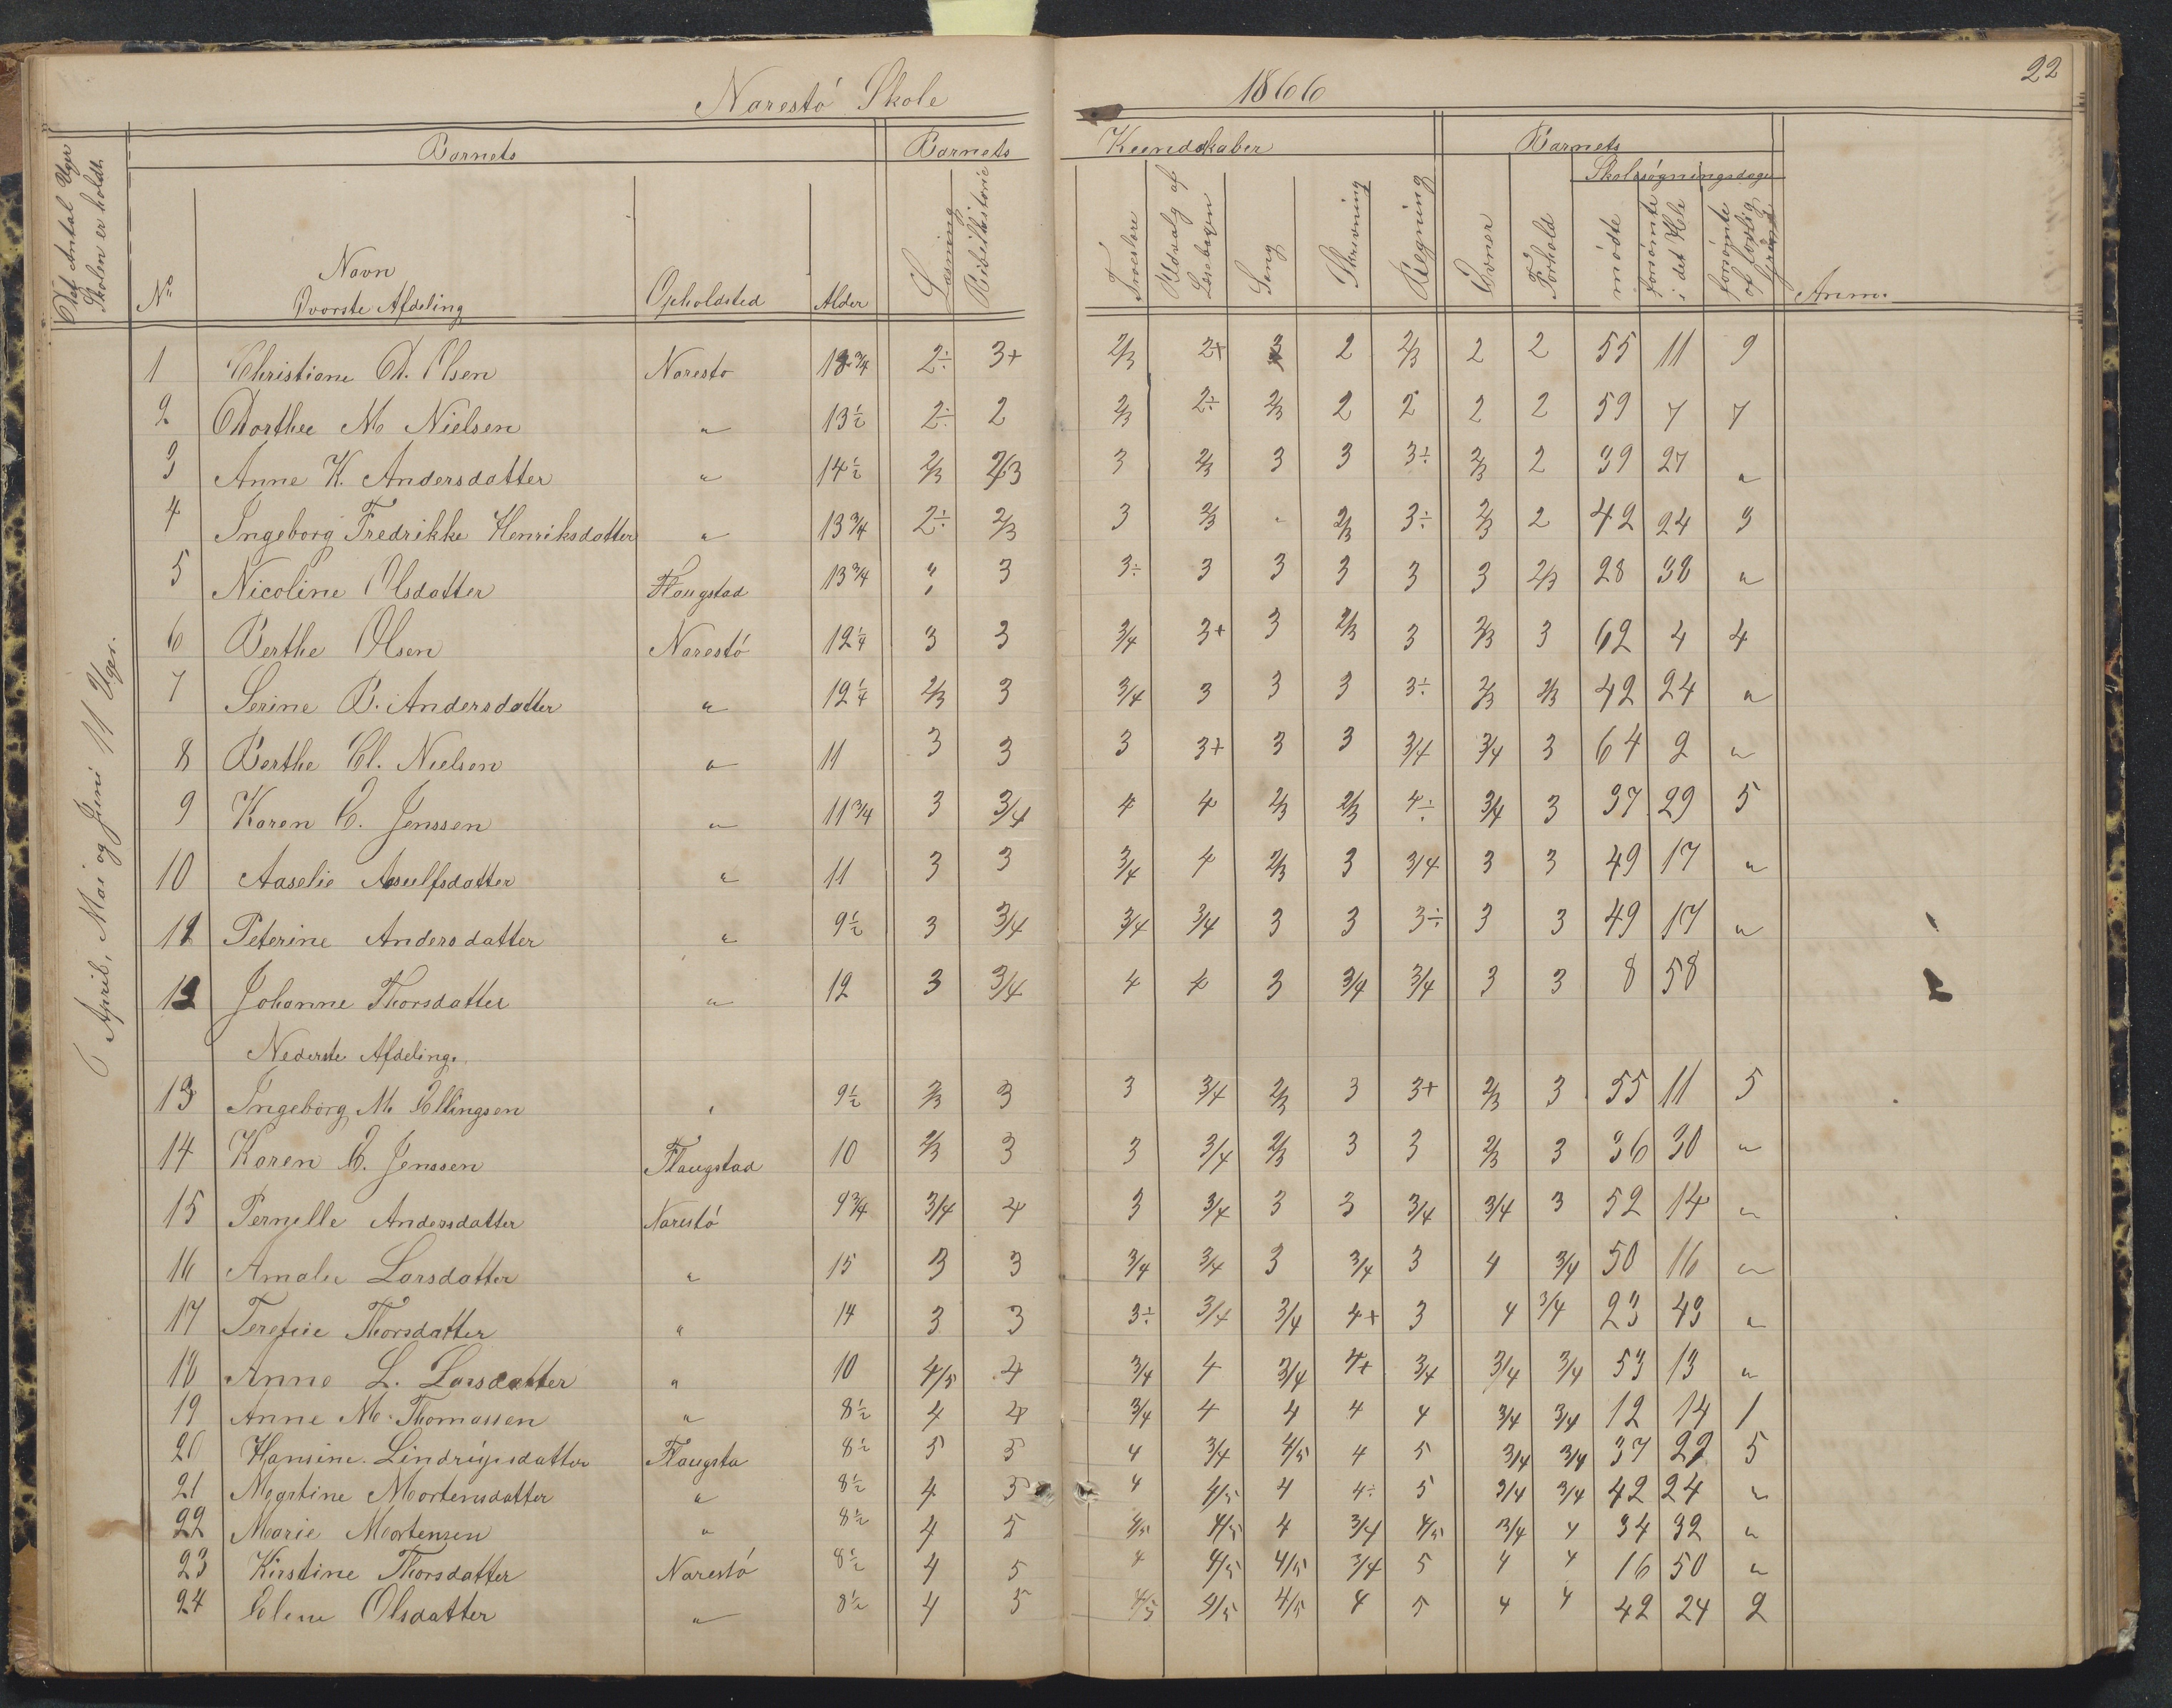 22
Narestö Skole 1866
Det Antal Uger Skolen er holdt.
Barnets
Barnets Kundskaber
Barnets
Skolesøgningsdage
No
Navn
Øverste Afdeling
Opholdsted
Alder
Læsning
Bibelhistorie
Troeslære
Udvalg af Læsebogen
Sang
Skrivning
Regning
Evner
Forhold
mödte
forsömte i det Hele
forsömte af lovlig Grund
Anm.
6 April, Mai og Juni 11 Uger.
1 Christiane Olsen Naresto 13 3/4 2÷ 3+ 2/3 2+ 3 2 2/3 2 2 55 11 9
2 Dorthee M. Nielsen " 13 1/2 2÷ 2 2/3 2÷ 2/3 2 2 2 2 59 7 7
3 Anne K. Andersdatter " 14 1/2 2/3 2/3 3 2/3 3 3 3÷ 2/3 2 39 27 "
4 Ingeborg Fredrikke Henriksdatter " 13 3/4 2÷ 2/3 3 2/3 - 2/3 3÷ 2/3 2 42 24 3
5 Nicoline Olsdatter Flaugstad 13 3/4 " 3 3÷ 3 3 3 3 3 2/3 28 38 "
6 Berthe Olsen Narestö 12 1/4 3 3 3/4 3+ 3 2/3 3 2/3 3 62 4 4
7 Serine B. Andersdatter " 12 1/4 2/3 3 3/4 3 3 3 3÷ 2/3 2/3 42 24 "
8 Berthe Cl. Nielsen " 11 3 3 3 3+ 3 3 3/4 3/4 3 64 2 "
9 Karen C. Jenssen " 11 3/4 3 3/4 4 4 2/3 2/3 4÷ 3/4 3 37 29 5
10 Aaselie Asulfsdatter " 11 3 3 3/4 4 2/3 3 3/4 3 3 49 17 "
11 Peterine Andersdatter " 9 1/2 3 3/4 3/4 3/4 3 3 3÷ 3 3 49 17 "
12 Johanne Thorsdatter " 12 3 3/4 4 4 3 3/4 3/4 3 3 8 58
Nederste Afdeling.
13 Ingeborg M. Ellingsen " 9 1/2 2/3 3 3 3/4 2/3 3 3+ 2/3 3 55 11 5
14 Karen E. Jenssen Flaugstad 10 2/3 3 3 3/4 2/3 3 3 2/3 3 36 30 "
15 Pernelle Andersdatter Narestö 9 3/4 3/4 4 3 3/4 3 3 3/4 3/4 3 52 14 "
16 Amalie Larsdatter " 15 3 3 3/4 3/4 3 3/4 3 4 3/4 50 16 "
17 Terefeie Thorsdatter " 14 3 3 3÷ 3/4 3/4 4+ 3 4 3/4 23 43 "
18 Anne L. Larsdatter " 10 4/5 4 3/4 4 3/4 4+ 3/4 3/4 3/4 53 13 "
19 Anne M. Thomassen " 8 1/2 4 4 3/4 4 4 4 4 3/4 3/4 12 14 1
20 Hansine Flaugsta 8 1/2 5 5 4 3/4 4/5 4 5 3/4 3/4 37 29 5
21 Mortensdatter " 8 1/2 4 5 4 4/5 4 4÷ 5 3/4 3/4 42 24 "
22 Marie Mortensen " 8 1/2 4 5 4/5 4/5 4 3/4 4/5 3/4 4 34 32 "
23 Kirstine Thorsdatter Narestö 8 1/2 4 5 4 4/5 4/5 3/4 5 4 4 16 50 "
24 Olsdatter " 8 1/2 4 5 4/5 4/5 4/5 4 5 4 4 42 24 2